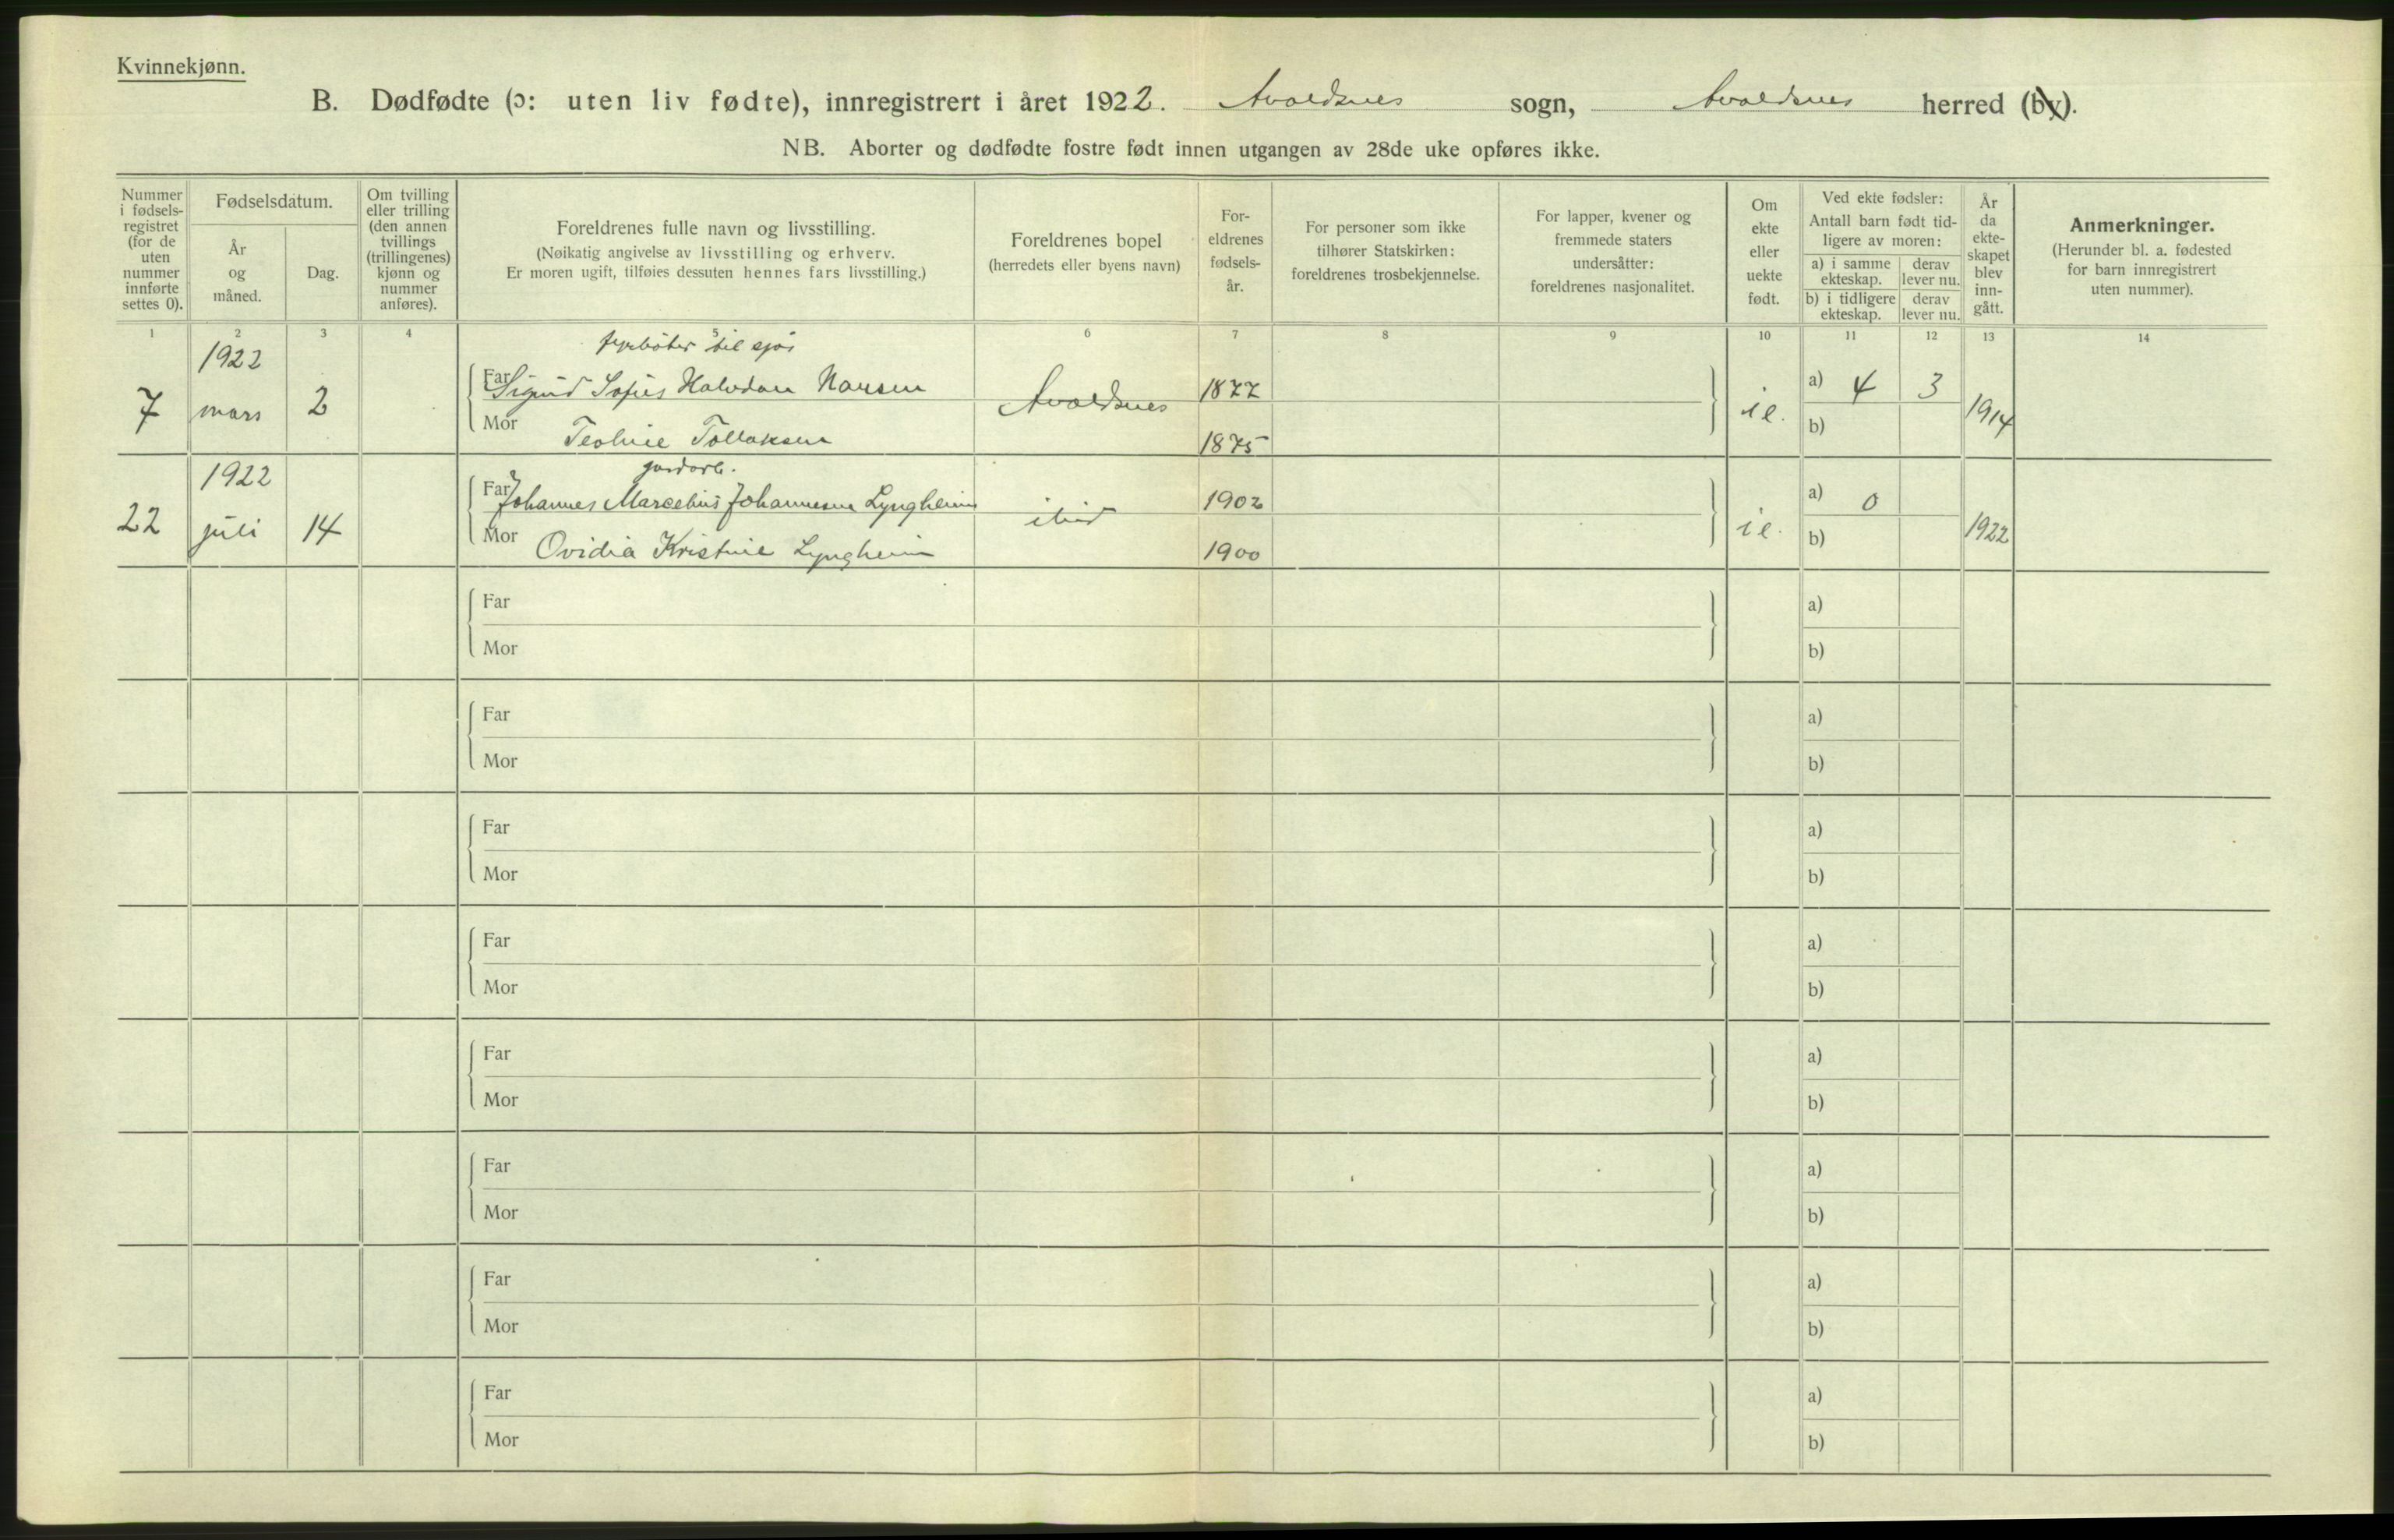 Kvinnekjønn.
B. Dødfødte (ɔ: uten liv fødte), innregistrert i året 1922. Avaldsnes sogn, Avaldsnes herred (by).
NB. Aborter og dødfødte fostre født innen utgangen av 28de uke opføres ikke.
Nummer
i fødsels-
registret
(for de
uten
nummer
innførte
settes 0).
Fødselsdatum.
År
og
måned.
Dag.
Om tvilling
eller trilling
(den annen
tvillings
(trillingenes)
kjønn og
nummer
anføres).
Foreldrenes fulle navn og livsstilling.
(Nøikatig angivelse av livsstilling og erhverv.
Er moren ugift, tilføies dessuten hennes fars livsstilling.)
Foreldrenes bopel
(herredets eller byens navn)
For-
eldrenes
fødsels-
år.
For personer som ikke
tilhører Statskirken:
foreldrenes trosbekjennelse.
For lapper, kvener og
fremmede staters
undersåtter:
foreldrenes nasjonalitet.
Om
ekte
eller
uekte
født.
Ved ekte fødsler:
Antall barn født tid-
ligere av moren:
a) i samme
ekteskap.
derav
lever nu.
b) i tidligere
ekteskap.
derav
lever nu.
År
da
ekte-
skapet
blev
inn-
gått.
Anmerkninger.
(Herunder bl. a. fødested
for barn innregistrert
uten nummer).
1 2 3 4 5 6 7 8 9 10 11 12 13 14
fyrbøter til sjøs
1922
7 mars 2
Far Sigurd Sofus Halvdan Hansen
Avaldsnes
1877
i e.
a) 4 3
1914
Mor Teoline Tollaksen
1875
b)
gardarb.
1922
22 juli 14
Far Johannes Marselius Johannesen Lyngheim
ibid
1902
i e.
a) 0
1922
Mor Ovidia Kristine Lyngheim
1900
b)
Far a)
Mor b)
Far a)
Mor b)
Far a)
Mor b)
Far a)
Mor b)
Far a)
Mor b)
Far a)
Mor b)
Far a)
Mor b)
Far a)
Mor b)